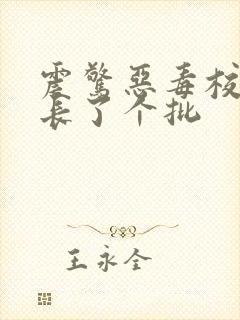 震驚惡毒校
長了个批
王永全